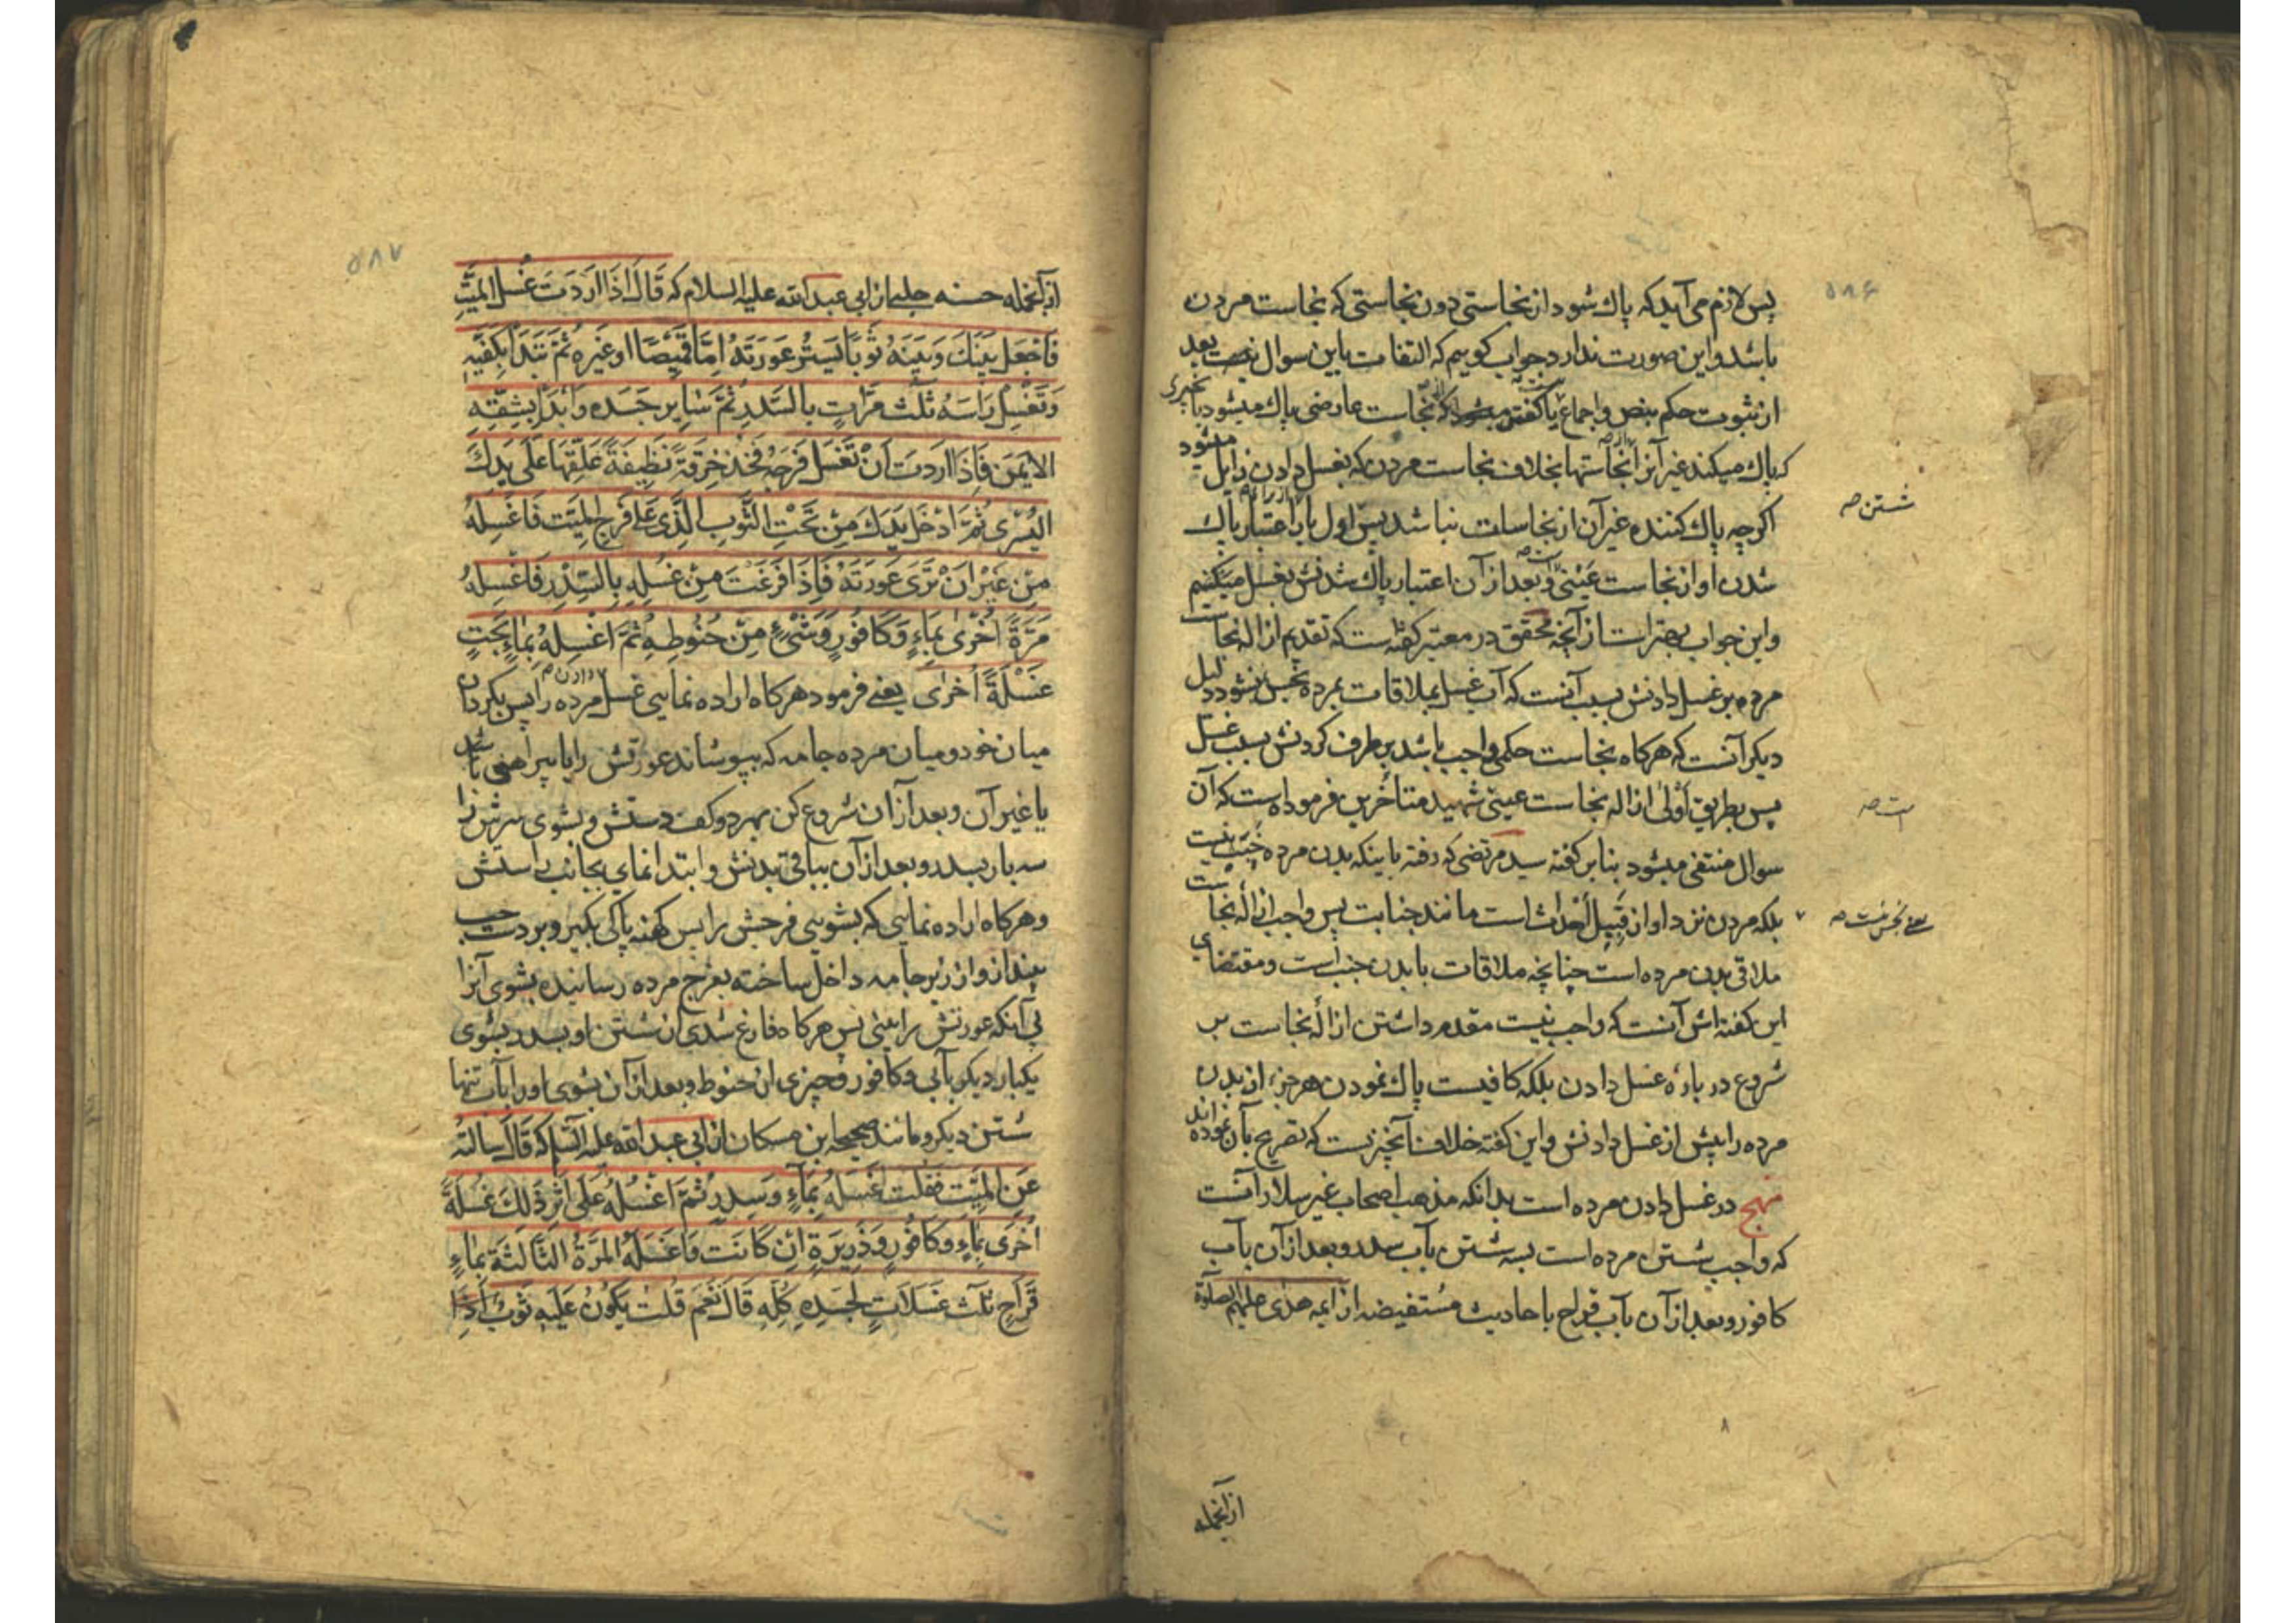 ۵۸۶
پس لازم می‌آید که پاك شود از نجاستی دون نجاستی که نجاست مردن
باشد و این صورت ندارد جواب کوییم که التفات باین سوال نیست بعد
از ثبوت حکم بنص و اجماع یا کفته میشود که نجاست عارضی پاك میشود بآ نچیزی
که پاك میکند غیر آنرا از نجاستها بخلاف نجاست مردن که بغسل دادن زایل میشود
اکرچه پاك کننده غیر آن از نجاسات نباشد پس اول باید اعتبار پاك
شستن صه
شدن او از نجاست عینی و بعد از آن اعتبار پاك شدنش بغسل میکنیم
و این جواب بهتر است از آنچه محقق در معتبر کفته است که تقدیم ازاله نجاست
مرده بر غسل دادنش بسبب آنست که آب غسل بملاقات مرده نجس نشود دلیل
دیکر آنست که هرکاه نجاست حکمی واجب باشد برطرف کردنش بسبب غسل
پس بطریق اولی ازاله نجاست عینی شهید متاخرین فرموده است که آن
ست صه
سوال منتفی میشود بنابر کفته سید مرتضی که رفته باینکه بدن مرده خبث نیست
بلکه مردن نزد او از قبیل احداث است مانند جنابت پس واجب ازاله نجاست
یعنی نجس نیست صه
ملاقی بدن مرده است چنانچه ملاقات با بدن جنب است و مقتضای
این کفته‌اش آنست که واجب نیست مقدم داشتن ازاله نجاست بر
شروع در باره غسل دادن بلکه کافیست پاك نمودن هر جزء از بدن
مرده را پیش از غسل دادنش و این کفته خلاف آنچیزیست که تصریح بآن نموده‌اند
منهج در غسل دادن مرده است بدانکه مذهب اصحاب غیر سلار آنست
که واجب شستن مرده است بسه شستن بآب سدر و بعد از آن بآب
کافور و بعد از آن بآب قراح باحادیث مستفیضه از ایمه هدی علیهم الصلوة
ازآنجمله
۵۸۷
ازآنجمله حسنه حلبی از ابی عبد الله علیه السلام که قَالَ اِذَا اَرَدتَ غُسلَ المَیِّتِ
فَاجعَل بَینَكَ وَ بَینَهُ ثَوبًا یَستُرُ عَورَتَهُ اِمَّا قَمِیصًا او غَیرَه ثُمَّ تَبدَأ بِکَفَّیهِ
وَ تَغسِلُ رَاسَهُ ثلث مَرّاتٍ بالسِّدرِ ثُمَّ سَایِر جَسَدِه وَ ابدَأ بِشِقِّهِ
الایمَن فَاِذَا اردتَ اَن تَغسِلَ فَرجَهُ فَخُذ خِرقَةً نَظِیفَةً عَلِّقهَا عَلَی یَدِكَ
الیُسرَی ثُمَّ ادخَل یَدَكَ مِن تَحتِ الثَّوبِ الَّذِی عَلَی فَرجِ المَیِّت فَاغسِلهُ
مِن غَیرِ اَن تَرَی عَورَتَهُ فَاِذَا فَرَغتَ مِن غُسلِهِ بِالسِّدرِ فَاغسِلهُ
مَرَّةً اُخرَی بِمَاءٍ وَ کَافُورٍ وَ شَیءٍ مِن حَنُوطِهِ ثُمَّ اغسِلهُ بِمَاءٍ بَحتٍ
غَسلَةً اُخرَی یعنی فرمود هرکاه اراده نمایی غسل دادن مرده را پس بکردان
میان خود و میان مرده جامه که بپوشاند عورتش را یا پیراهنی باشد
یا غیر آن و بعد از آن شروع کن بهر دو کف دستش و بشوی سرش را
سه بار بسدر و بعد از آن بباقی بدنش و ابتدا نمای بجانب راستش
و هرکاه اراده نمایی که بشویی فرجش را پس کهنه پاکی بکیر و بر دست چپ
بینداز و از زیر جامه داخل ساخته بفرج مرده رسانیده بشوی آنرا
بی آنکه عورتش را بینی پس هرکاه فارغ شدی از شستن او بسدر بشوی
یکبار دیکر بآبی و کافور و چیزی از حنوط و بعد از آن بشوی او را بآب تنها
شستن دیکر و مانند صحیحه ابن مسکان از ابی عبد الله علیه السلام که قَالَ سَالتُهُ
عَنِ المَیِّت فَقَالَ غَسِّلهُ بِمَاءٍ وَ سِدرٍ ثُمَّ اغسِلهُ عَلَی اَثَرِ ذَلِكَ غُسلَةً
اُخرَی بِمَاءٍ وَ کَافُورٍ وَ ذَرِیرَةٍ اِن کَانَت وَ اغسِلهُ المَرَّةَ الثَّالثَةَ بِمَاءٍ
قَرَاحٍ ثَلثَ غَسَلَاتٍ لِجَسَدِهِ کُلِّهِ قَالَ نَعَم قُلتُ یَکُونُ عَلَیهِ ثَوبٌ اِذَا